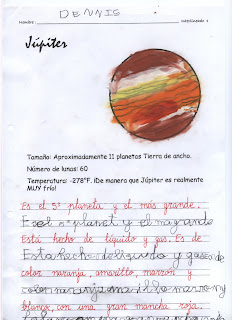 DENNIS
Nombre:
Júpiter
Tamaño: Aproximadamente 11 planetas Tierra de ancho.
Número de lunas: 60
Temperatura: -278°F. ¡De manera que Júpiter es realmente
MUY frío!
Es el 5º planeta y el más grande.
Es el 5º planet y el ma grande
Está hecho de líquido y gas. Es de
Esta hecho de liquido y gas es de
color naranja, amarillo, marrón y
color naranja ma illo marro ny
blanco, con una gran mancha roja.